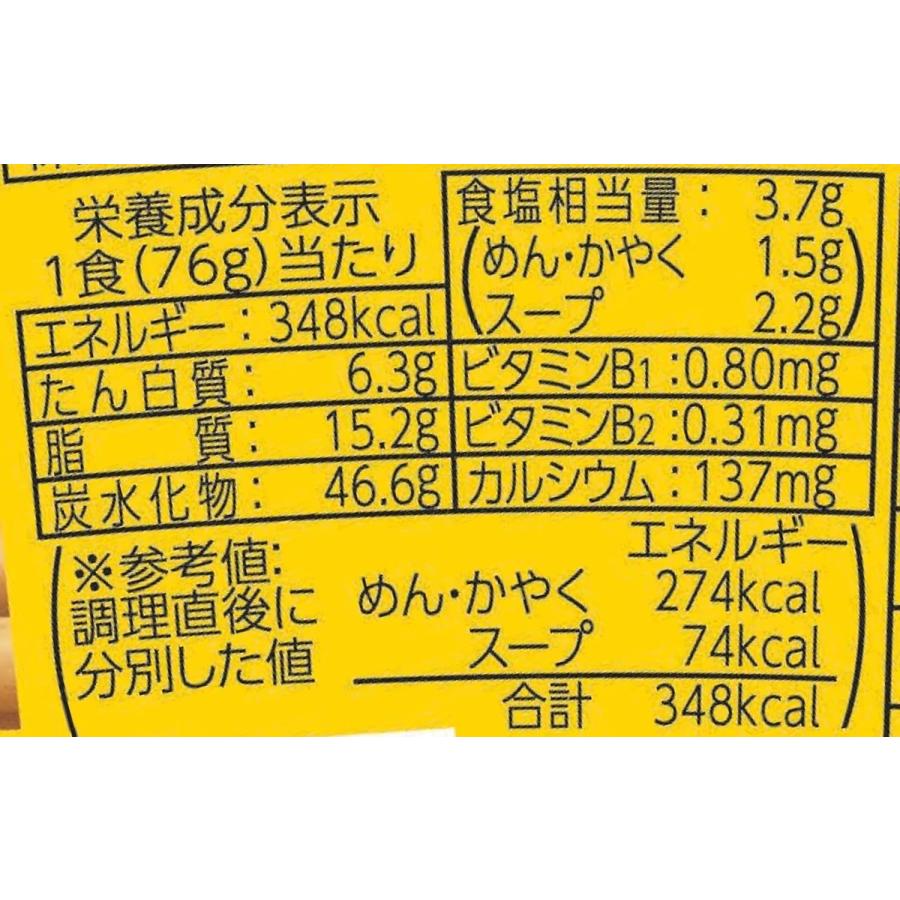 栄養成分表示
1食(76g)当たり
エネルギー:348kcal
たん白質: 6.3g
脂質: 15.2g
炭水化物: 46.6g
食塩相当量: 3.7g
(めん・かやく 1.5g
スープ 2.2g)
ビタミンB1:0.80mg
ビタミンB2:0.31mg
カルシウム:137mg
(※参考値:
調理直後に
分別した値
エネルギー
めん・かやく 274kcal
スープ 74kcal
合計 348kcal)